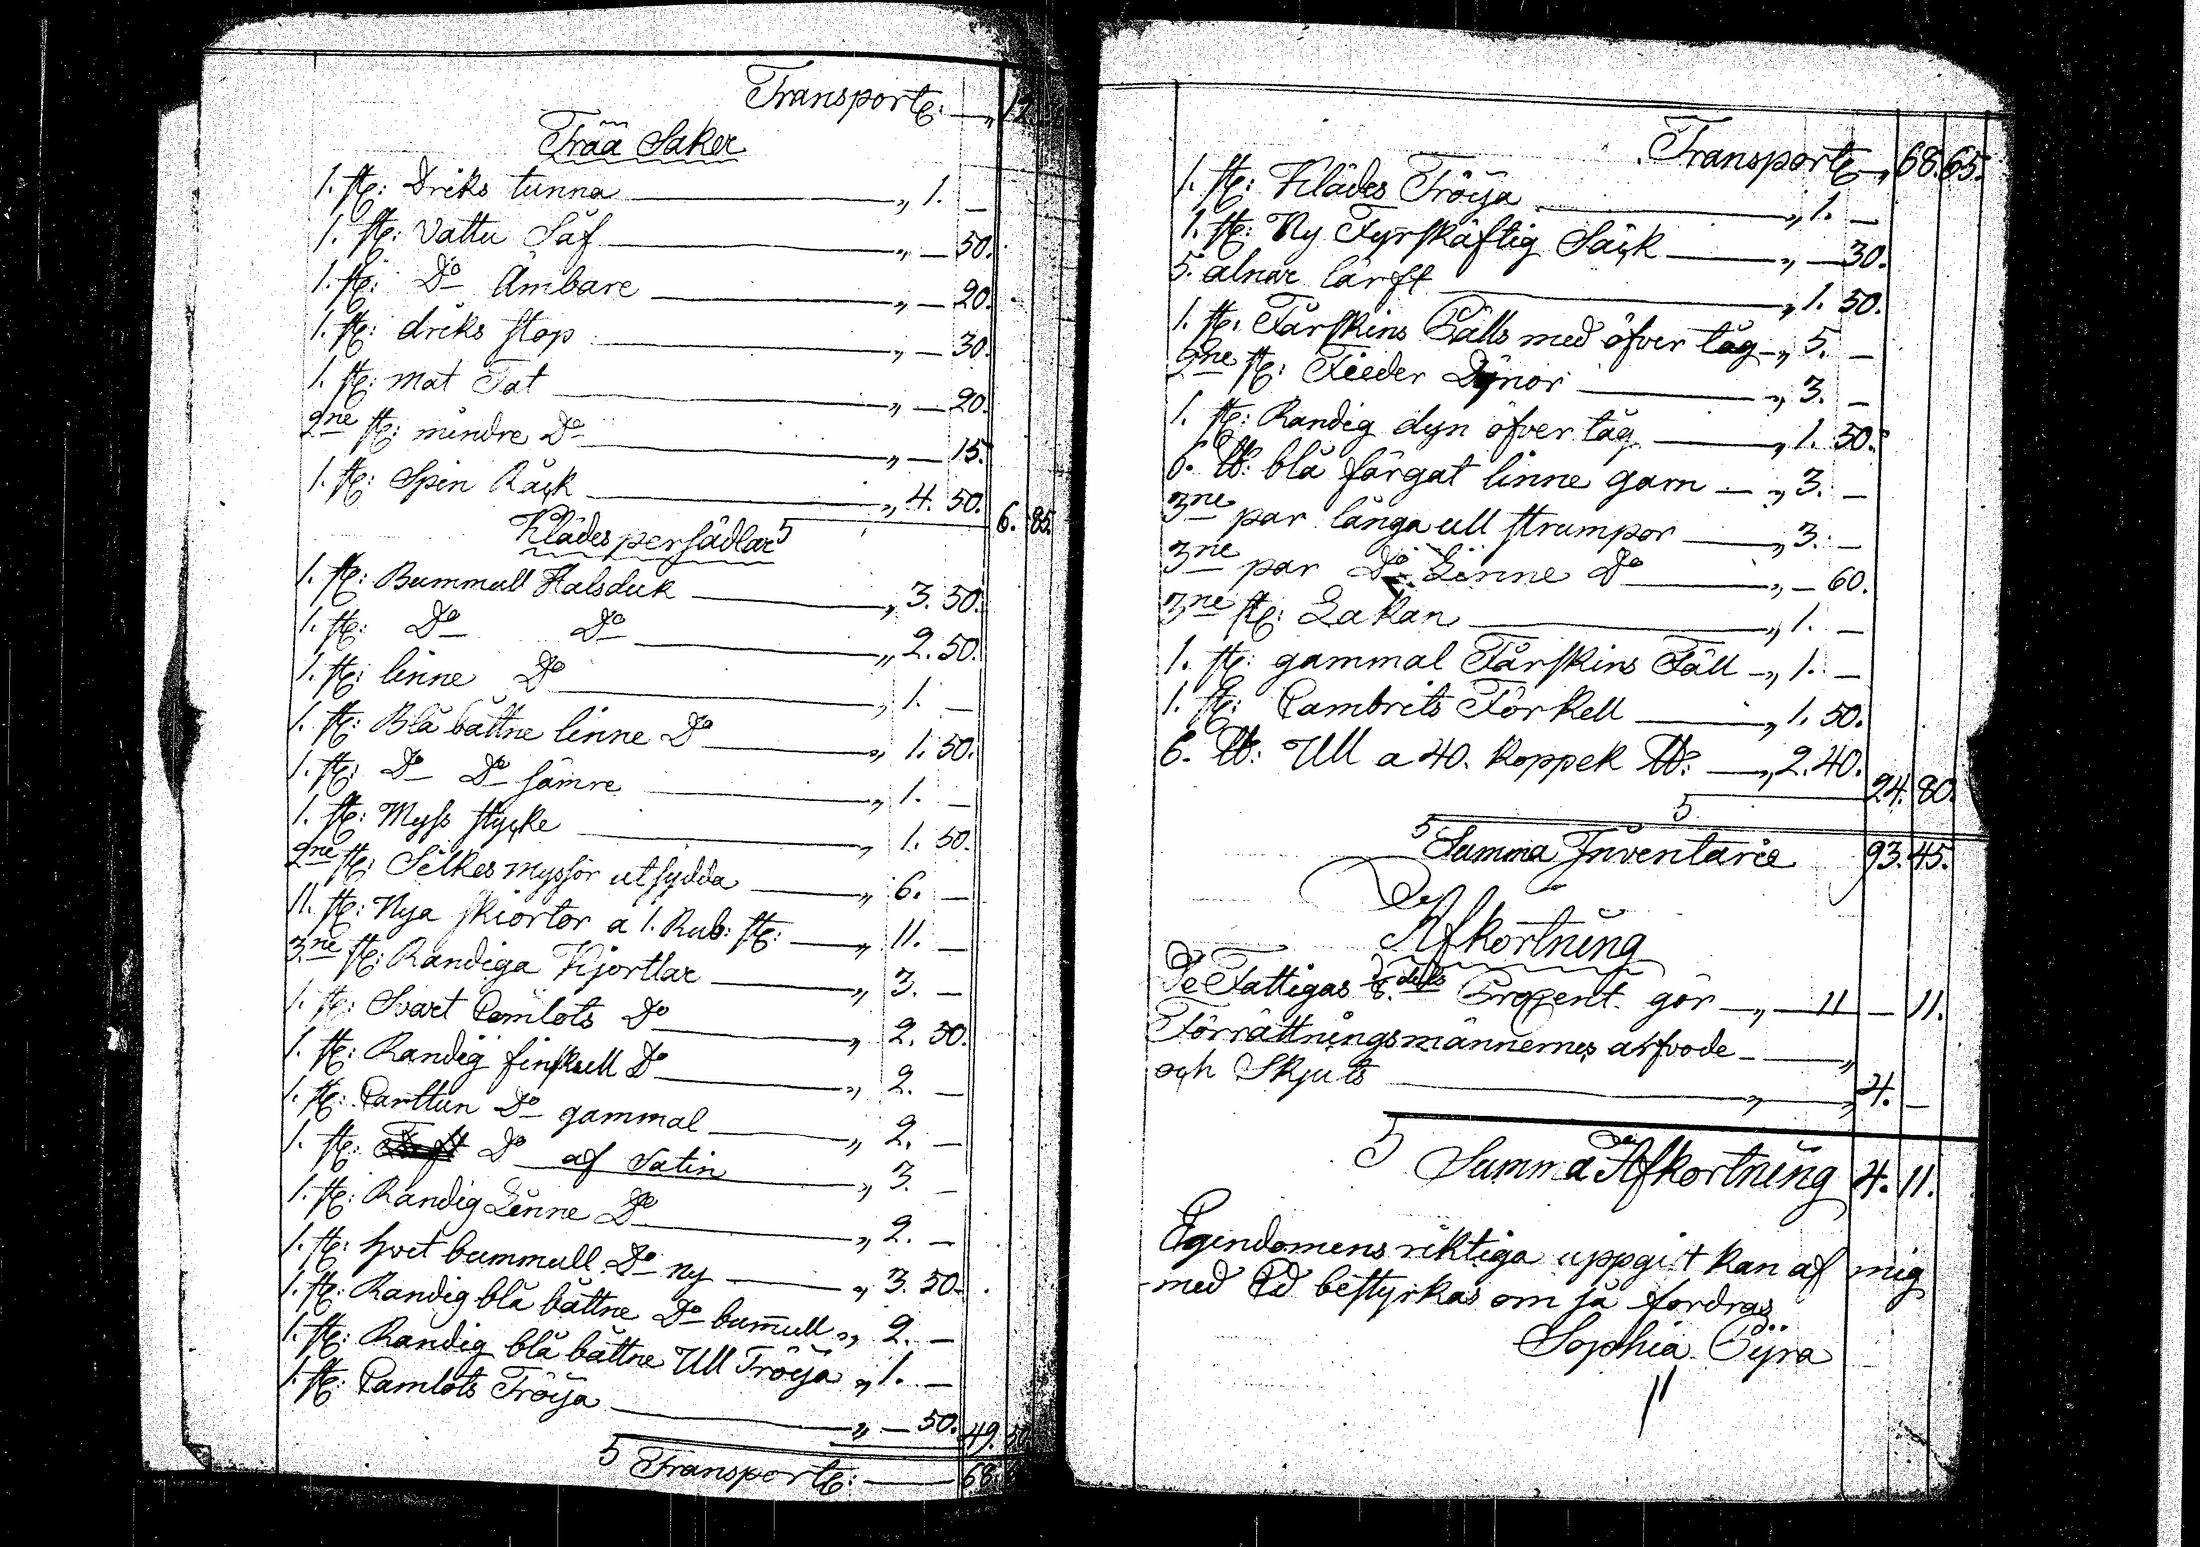 Transport: — „ 12
Trää Saker
1. st: Driks tunna — „ 1. —
1. st: Vattu Såf — „ — 50.
1. st: Do Ämbare — „ — 20.
1. st: driks stop — „ — 30.
1. st: mat Fat — „ — 20.
2ne st: mindre Do — „ — 15.
1. st: Spin Råck — „ 4. 50. 6. 85.
Klädespersädlar
1. st: Bummull Halsduk — „ 3. 50.
1. st: Do Do — „ 2. 50.
1. st: linne Do — „ 1. —
1. st: Blå båttne linne Do — „ 1. 50.
1. st: Do Do sämre — „ 1. —
1. st: Myss stycke — „ 1. 50.
2ne st: Silkes myssor utsydda — „ 6. —
11. st: Nya skiortor a 1. Rub: st: — „ 11. —
3ne st: Randiga Kjortlar — „ 3. —
1. st: Svart Camlots Do — „ 2. 50.
1. st: Randig finskull Do — „ 2. —
1. st: Carttun Do gammal — „ 2. —
1. st: Do af Satin — „ 3. —
1. st: Randig Linne Do — „ 2. —
1. st: hvit bummull Do ny — „ 3. 50.
1. st: Randig blå båttne Do bumull „ 2. —
1. st: Randig blå båttne Ull Tröija „ 1. —
1. st: Camlots Tröija — „ — 50. 49. 50
Transport: — 68.
Transport — „ 68. 65.
1. st: Klädes Tröija — „ 1. —
1. st: Ny Fyrskäftig Säck — „ — 30.
5. alnar lärft — „ 1. 50.
1. st. Fårskins Pälls med öfver tåg — „ 5. —
2ne st: Fieder Dynor — „ 3. —
1. st: Randig dyn öfver tåg — „ 1. 50.
6. ℔: blå färgat linne garn — „ 3. —
3ne par långa ull strumpor — „ 3. —
3ne par Do Linne Do — „ — 60.
3ne st: Lakan — „ 1. —
1. st: gammal Fårskins Fäll — „ 1. —
1. st: Cambrits Förkell — „ 1. 50.
6. ℔: Ull a 40. koppek ℔: — „ 2. 40. 24. 80.
Summa Inventarie 93. 45.
Afkortning
De Fattigas 1/8 dels Procent gör — „ — 11 — 11.
Förrättningsmännernes arfvode — „
och Skjuts — „ — „ 4. —
Summa Afkortning 4. 11.
Egendomens riktiga uppgift kan af mig
med Ed bestyrkas om så fordras
Sophia Pÿra